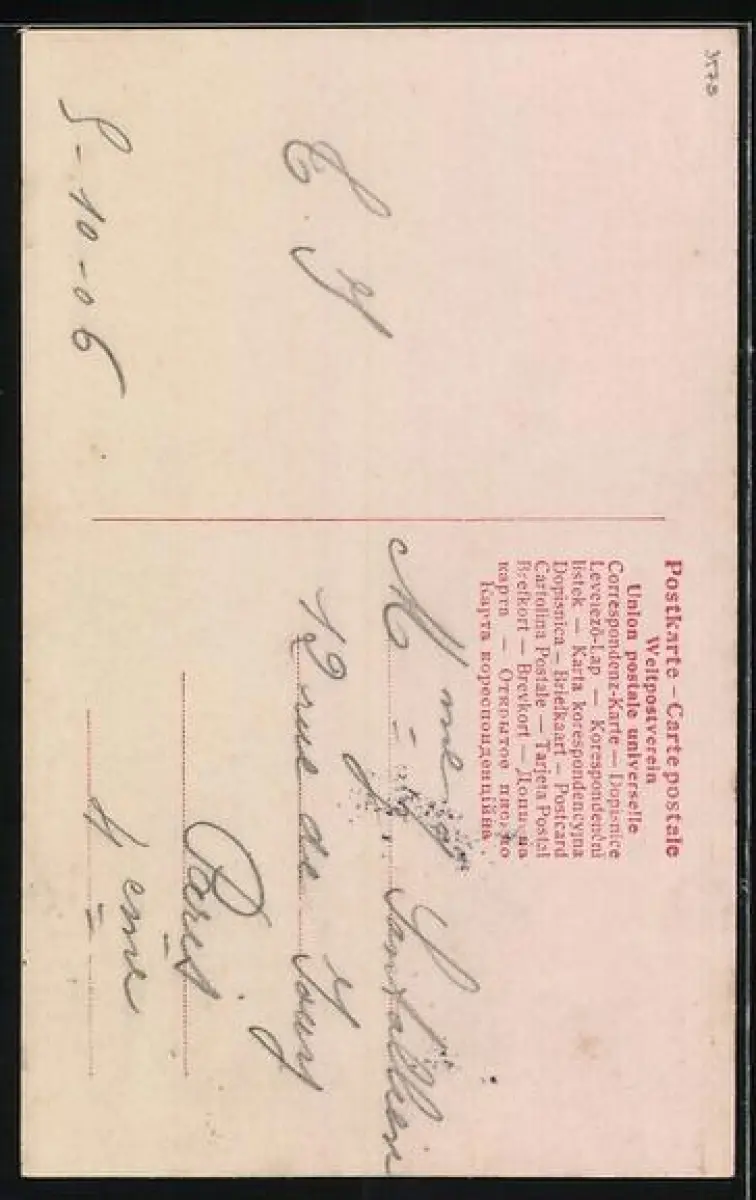 3578
E. Y
5-10-06
Postkarte – Carte postale
Weltpostverein
Union postale universelle
Correspondenz-Karte — Dopisnice
Levelező-Lap — Korespondenční
listek — Karta korespondencyjna
Dopisnica – Briefkaart – Postcard
Cartolina Postale — Tarjeta Postal
Brefkort — Brevkort —
карта — Открытое письмо
Карта кореспонденційна.
Mme
19 rue de
Paris
4 eme